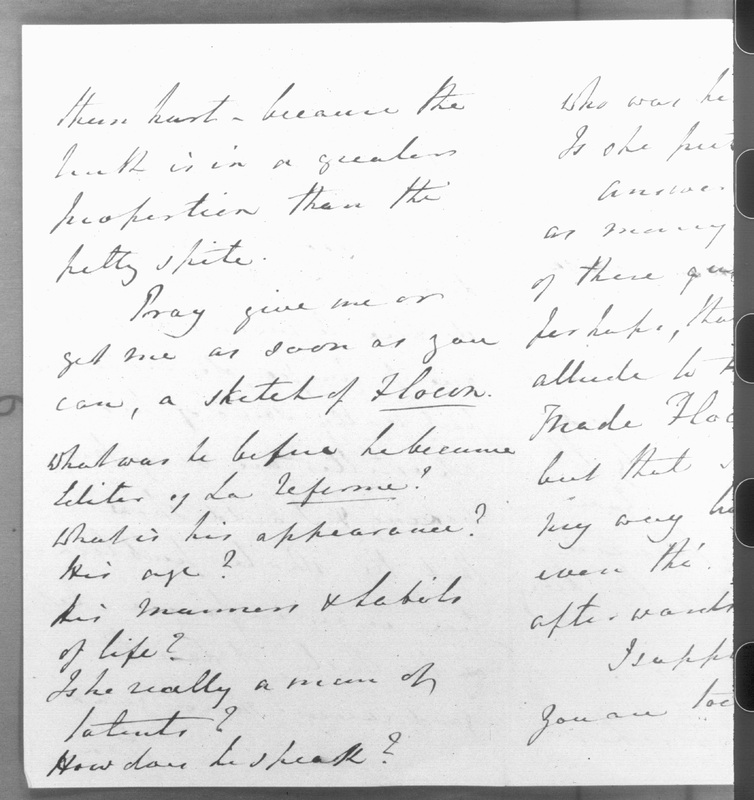 them hurt – because the
truth is in a greater
proportion than the
petty spite.
Pray give me or
get me as soon as you
can, a sketch of Flocon.
What was he before he became
Editor of La Reforme?
What is his appearance?
His age?
His manners & habits
of life?
Is he really a man of
talents?
How does he speak?
Who was hi
Is she
answer
as many
of these
perhaps, tha
allude to
Trade Floc
but that
my way
even tho'
afterwards
I supp
you are too